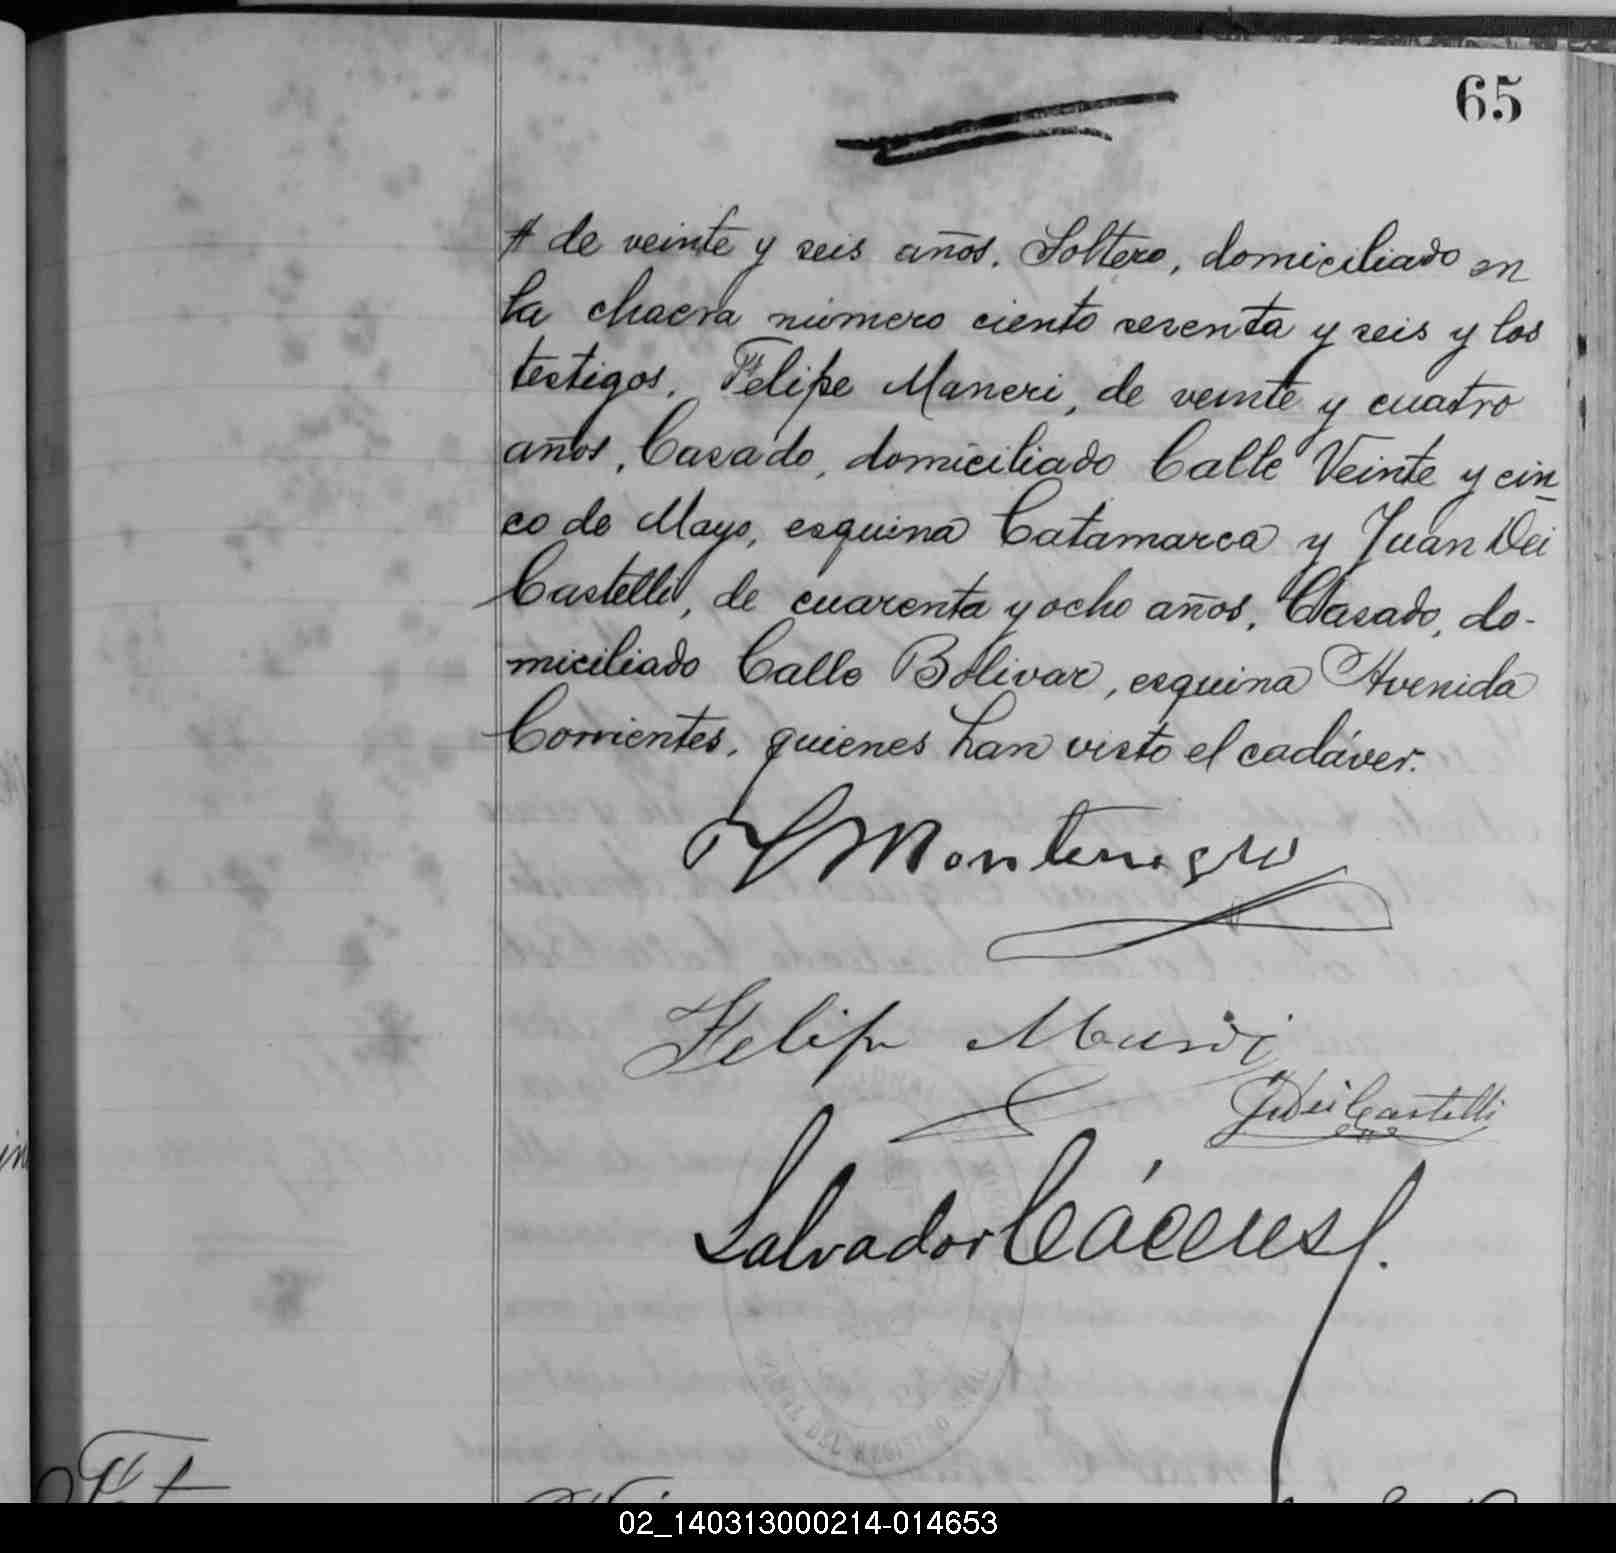 65
# de veinte y seis años. Soltero, domiciliado en
la chacra número ciento sesenta y seis y los
testigos. Felipe Maneri, de veinte y cuatro
años, Casado, domiciliado Calle Veinte y cin
co de Mayo, esquina Catamarca y Juan Dei
Castelli, de cuarenta y ocho años. Casado, do-
miciliado Calle Bolivar, esquina Avenida
Corrientes. quienes han visto el cadáver.
Montenegro
Felipe
J Dei Castelli
Salvador Cáceres
DEL REGISTRO
02_140313000214-014653